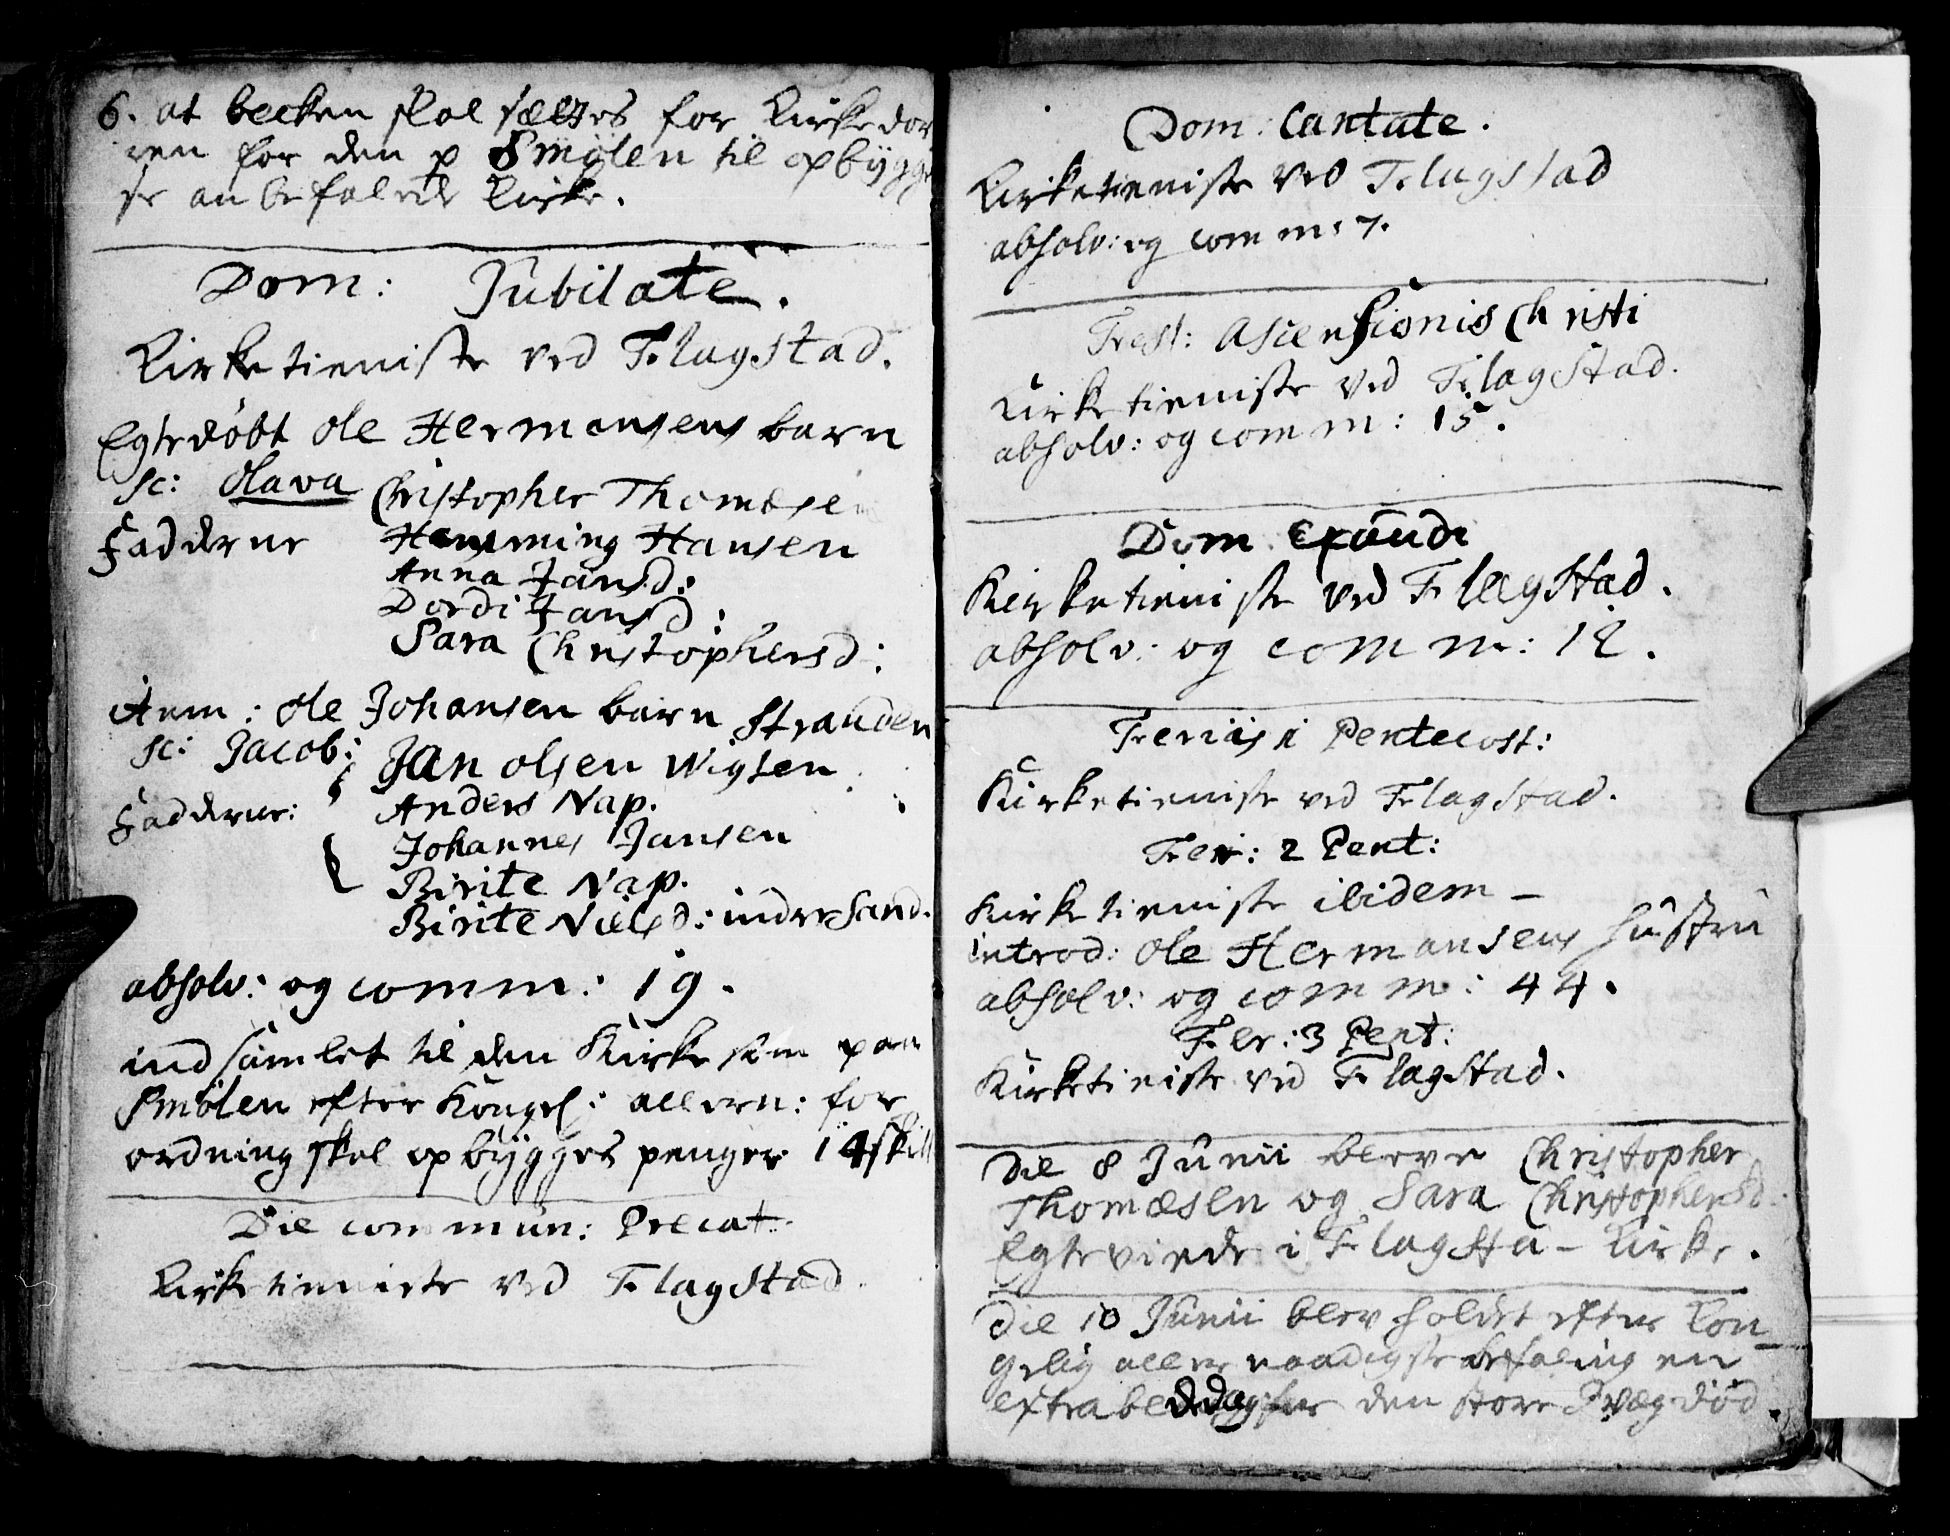 6. at becken skal sættes for Kirke dør
ren for den p Smølen til opbygge
se anbefalede Kirke.
Dom: Jubilate.
Kirketieniste ved Flagstad.
Egtedøbt Ole Hermansens barn
sc: Olava Christopher Thomæsen
Fadderne Hemming Hansen
Anna Jansd:
Dordi Jansd:
Sara Christophersd:
Item: Ole Johansen barn Stranden
sc: Jacob: Jan Olsen Wigten
Fadderne: Anders Nap.
Johannes Jansen
Birite Nap.
Birite Nielsd: indre Sand.
absolv: og comm: 19.
indsamlet til den Kirke som paa
Smølen efter Kongel: allern: for
ordning skal opbygges penger 14 skill
Die commun: Precat:
Kirketieniste ved Flagstad
Dom: Cantate.
Kirketieniste ved Flagstad
absolv: og comm: 7.
Fest: Ascensionis Christi
Kirketieniste ved Flagstad.
absolv: og comm: 15.
Dom. Exaudi
Kirketieniste ved Flagstad.
absolv: og comm: 12.
Feriis 1 Pentecost:
Kirketieniste ved Flagstad.
Feri: 2 Pent:
Kirketieniste ibidem –
introd: Ole Hermansens hustru
absolv: og comm: 44.
Fer: 3 Pent:
Kirketieniste ved Flagstad.
Die 8 Junii bleve Christopher
Thomæsen og Sara Christophersd:
Egteviede i Flagsta – Kirke.
Die 10 Junii blev holdet efter Kon
gelig allernaadigste befaling en
extra beddag for den store qvægdød.